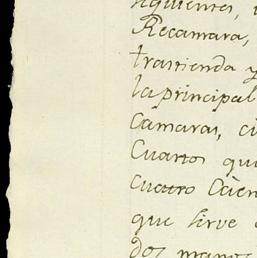 siguientes,
Recamara,
trastienda y
la principal
Camaras, ci
Cuartos qu
cuatro Càen
que sirve
dos manos